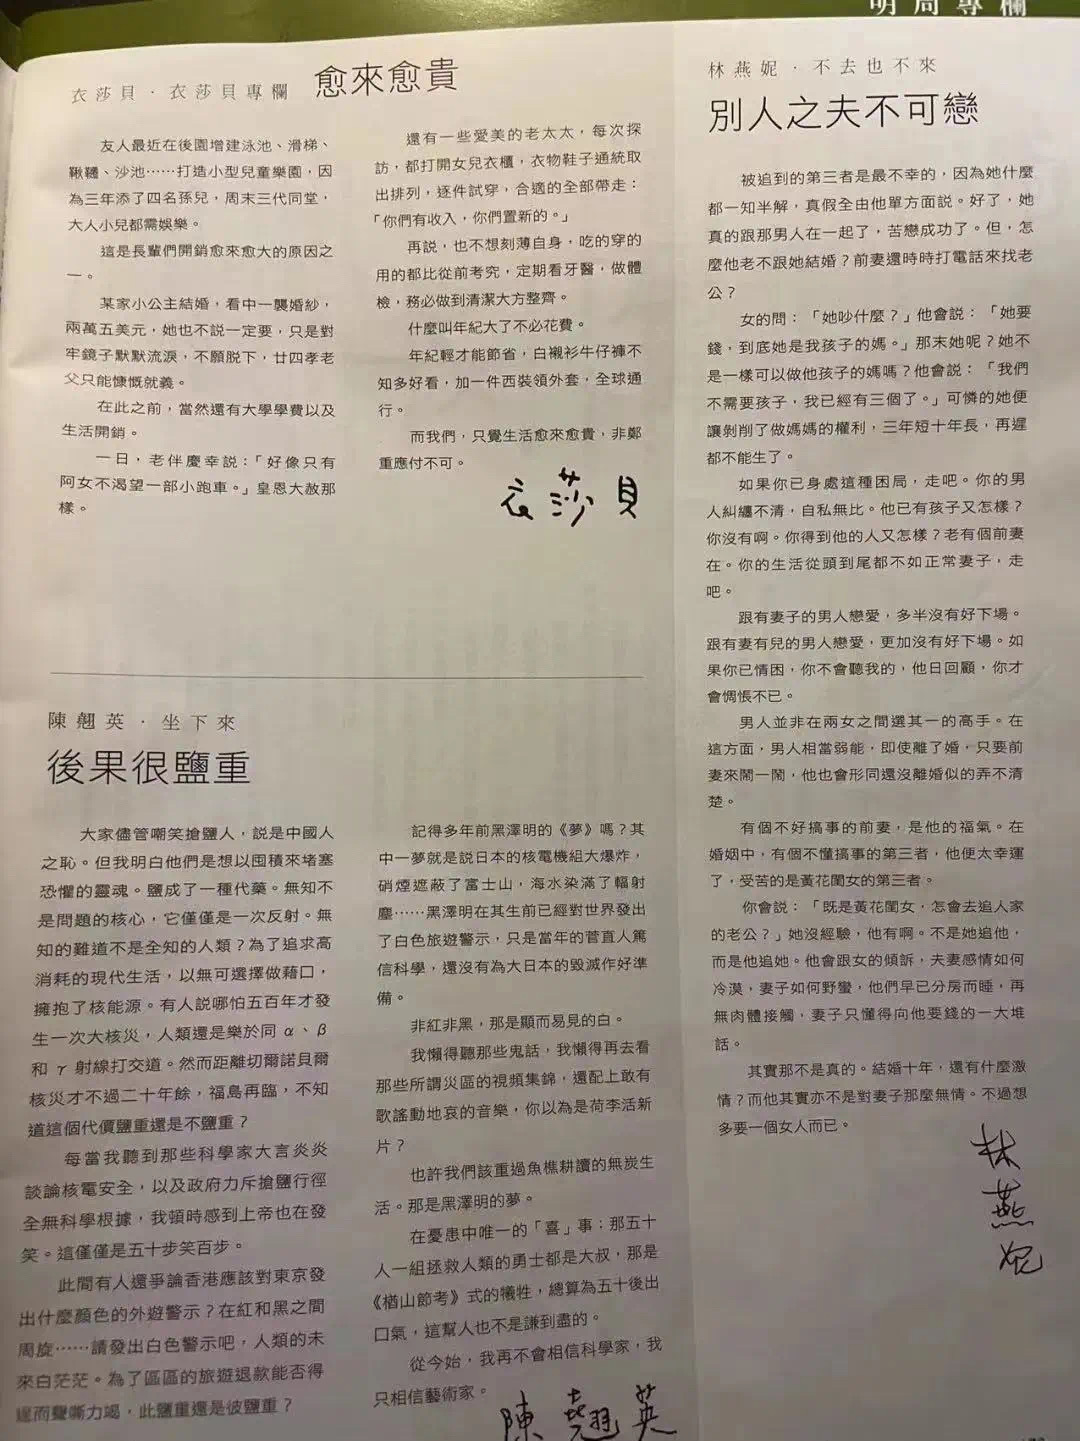 明周專欄
衣莎貝．衣莎貝專欄
愈來愈貴
友人最近在後園增建泳池、滑梯、
鞦韆、沙池……打造小型兒童樂園，因
為三年添了四名孫兒，周末三代同堂，
大人小兒都需娛樂。
這是長輩們開銷愈來愈大的原因之
一。
某家小公主結婚，看中一襲婚紗，
兩萬五美元，她也不説一定要，只是對
牢鏡子默默流淚，不願脱下，廿四孝老
父只能慷慨就義。
在此之前，當然還有大學學費以及
生活開銷。
一日，老伴慶幸説：「好像只有
阿女不渴望一部小跑車。」皇恩大赦那
樣。
還有一些愛美的老太太，每次探
訪，都打開女兒衣櫃，衣物鞋子通統取
出排列，逐件試穿，合適的全部帶走：
「你們有收入，你們置新的。」
再説，也不想刻薄自身，吃的穿的
用的都比從前考究，定期看牙醫，做體
檢，務必做到清潔大方整齊。
什麼叫年紀大了不必花費。
年紀輕才能節省，白襯衫牛仔褲不
知多好看，加一件西裝領外套，全球通
行。
而我們，只覺生活愈來愈貴，非鄭
重應付不可。
衣莎貝
陳翹英．坐下來
後果很鹽重
大家儘管嘲笑搶鹽人，説是中國人
之恥。但我明白他們是想以囤積來堵塞
恐懼的靈魂。鹽成了一種代藥。無知不
是問題的核心，它僅僅是一次反射。無
知的難道不是全知的人類？為了追求高
消耗的現代生活，以無可選擇做藉口，
擁抱了核能源。有人説哪怕五百年才發
生一次大核災，人類還是樂於同 α、β
和 γ 射線打交道。然而距離切爾諾貝爾
核災才不過二十年餘，福島再臨，不知
道這個代價鹽重還是不鹽重？
每當我聽到那些科學家大言炎炎
談論核電安全，以及政府力斥搶鹽行徑
全無科學根據，我頓時感到上帝也在發
笑。這僅僅是五十步笑百步。
此間有人還爭論香港應該對東京發
出什麼顏色的外遊警示？在紅和黑之間
周旋……請發出白色警示吧，人類的未
來白茫茫。為了區區的旅遊退款能否得
逞而聲嘶力竭，此鹽重還是彼鹽重？
記得多年前黑澤明的《夢》嗎？其
中一夢就是説日本的核電機組大爆炸，
硝煙遮蔽了富士山，海水染滿了輻射
塵……黑澤明在其生前已經對世界發出
了白色旅遊警示，只是當年的菅直人篤
信科學，還沒有為大日本的毀滅作好準
備。
非紅非黑，那是顯而易見的白。
我懶得聽那些鬼話，我懶得再去看
那些所謂災區的視頻集錦，還配上敢有
歌謠動地哀的音樂，你以為是荷李活新
片？
也許我們該重過魚樵耕讀的無炭生
活。那是黑澤明的夢。
在憂患中唯一的「喜」事：那五十
人一組拯救人類的勇士都是大叔，那是
《楢山節考》式的犧牲，總算為五十後出
口氣，這幫人也不是謙到盡的。
從今始，我再不會相信科學家，我
只相信藝術家。
陳翹英
林燕妮．不去也不來
別人之夫不可戀
被追到的第三者是最不幸的，因為她什麼
都一知半解，真假全由他單方面説。好了，她
真的跟那男人在一起了，苦戀成功了。但，怎
麼他老不跟她結婚？前妻還時時打電話來找老
公？
女的問：「她吵什麼？」他會説：「她要
錢，到底她是我孩子的媽。」那末她呢？她不
是一樣可以做他孩子的媽嗎？他會説：「我們
不需要孩子，我已經有三個了。」可憐的她便
讓剝削了做媽媽的權利，三年短十年長，再遲
都不能生了。
如果你已身處這種困局，走吧。你的男
人糾纏不清，自私無比。他已有孩子又怎樣？
你沒有啊。你得到他的人又怎樣？老有個前妻
在。你的生活從頭到尾都不如正常妻子，走
吧。
跟有妻子的男人戀愛，多半沒有好下場。
跟有妻有兒的男人戀愛，更加沒有好下場。如
果你已情困，你不會聽我的，他日回顧，你才
會惆悵不已。
男人並非在兩女之間選其一的高手。在
這方面，男人相當弱能，即使離了婚，只要前
妻來鬧一鬧，他也會形同還沒離婚似的弄不清
楚。
有個不好搞事的前妻，是他的福氣。在
婚姻中，有個不懂搞事的第三者，他便太幸運
了，受苦的是黃花閨女的第三者。
你會説：「既是黃花閨女，怎會去追人家
的老公？」她沒經驗，他有啊。不是她追他，
而是他追她。他會跟女的傾訴，夫妻感情如何
冷漠，妻子如何野蠻，他們早已分房而睡，再
無肉體接觸，妻子只懂得向他要錢的一大堆
話。
其實那不是真的。結婚十年，還有什麼激
情？而他其實亦不是對妻子那麼無情。不過想
多要一個女人而已。
林燕妮